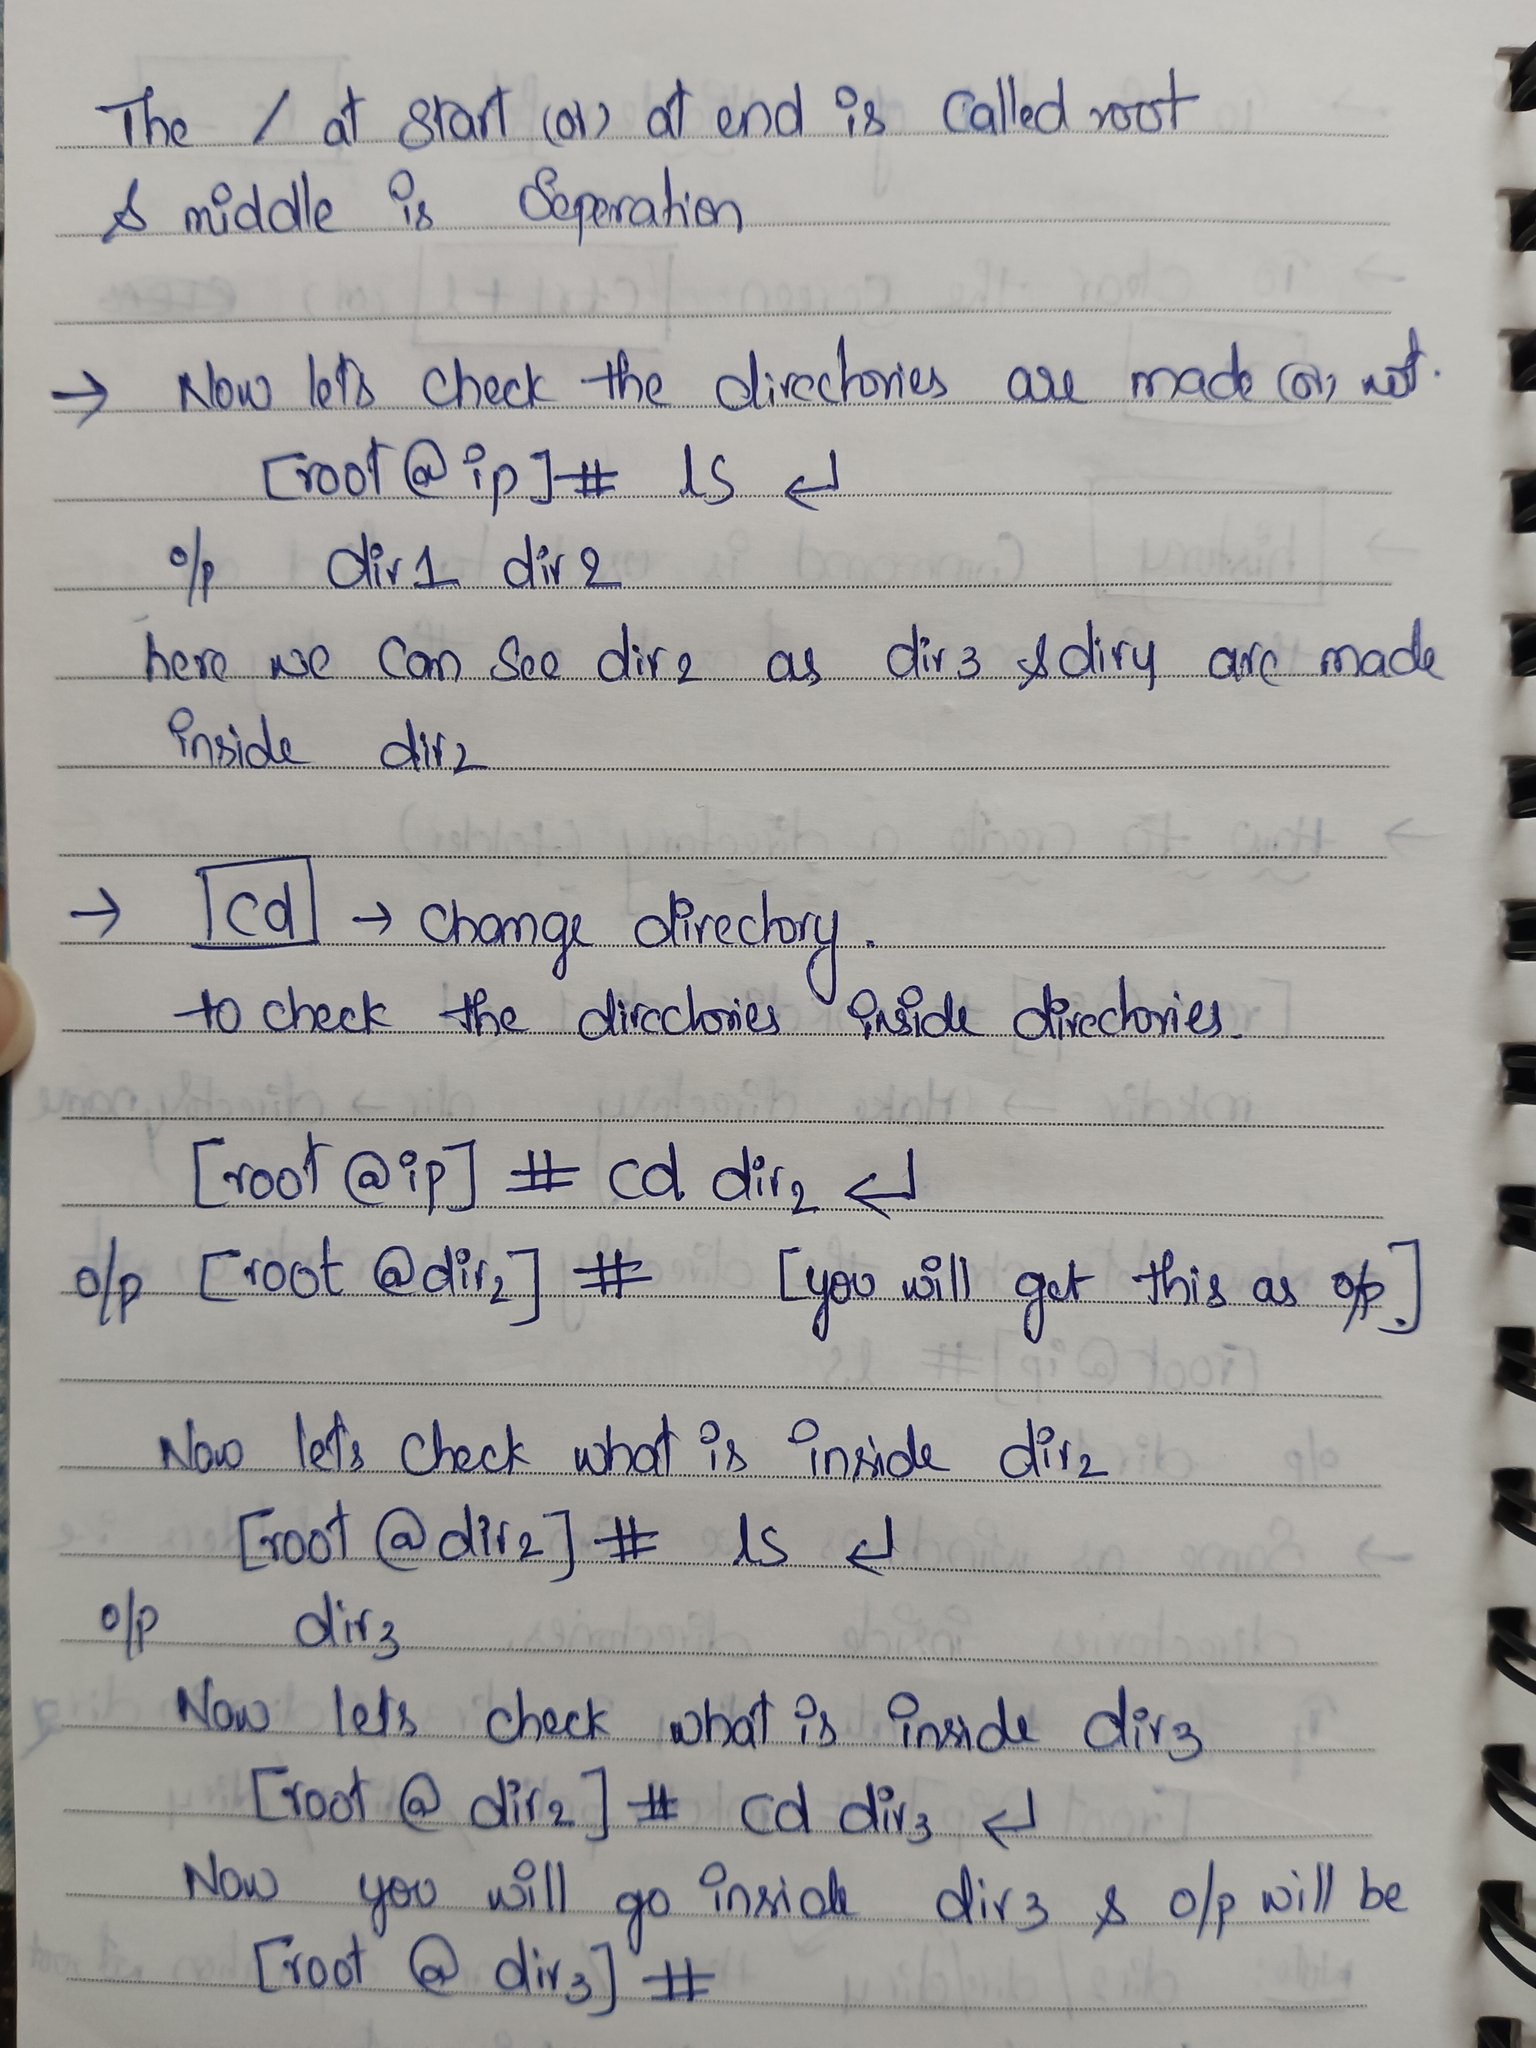 The / at start (or) at end is called root
& middle is Seperation
→ Now let's check the directories are made (or) not.
[root@ip]# ls ↵
o/p dir1 dir2
here we can see dir2 as dir3 & dir4 are made
inside dir2
→ cd → change directory.
to check the directories inside directories.
[root@ip] # cd dir2 ↵
o/p [root @dir2] # [you will get this as o/p.]
Now let's check what is inside dir2
[root @dir2]# ls ↵
o/p dir3
Now let's check what is inside dir3
[root @ dir2] # cd dir3 ↵
Now you will go inside dir3 & o/p will be
[root @ dir3] #